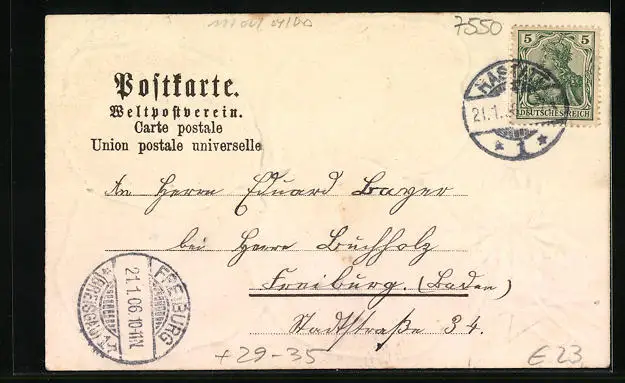 7550
5
DEUTSCHES REICH
RASTATT
21.1.
1
Postkarte.
Weltpostverein.
Carte postale
Union postale universelle
An Herrn Eduard Bayer
bei Herrn Buchholz
Freiburg. (Baden)
Stadtstraße 34.
FREIBURG
21.1.06.10-11N
(BREISGAU)
+29-35
E 23